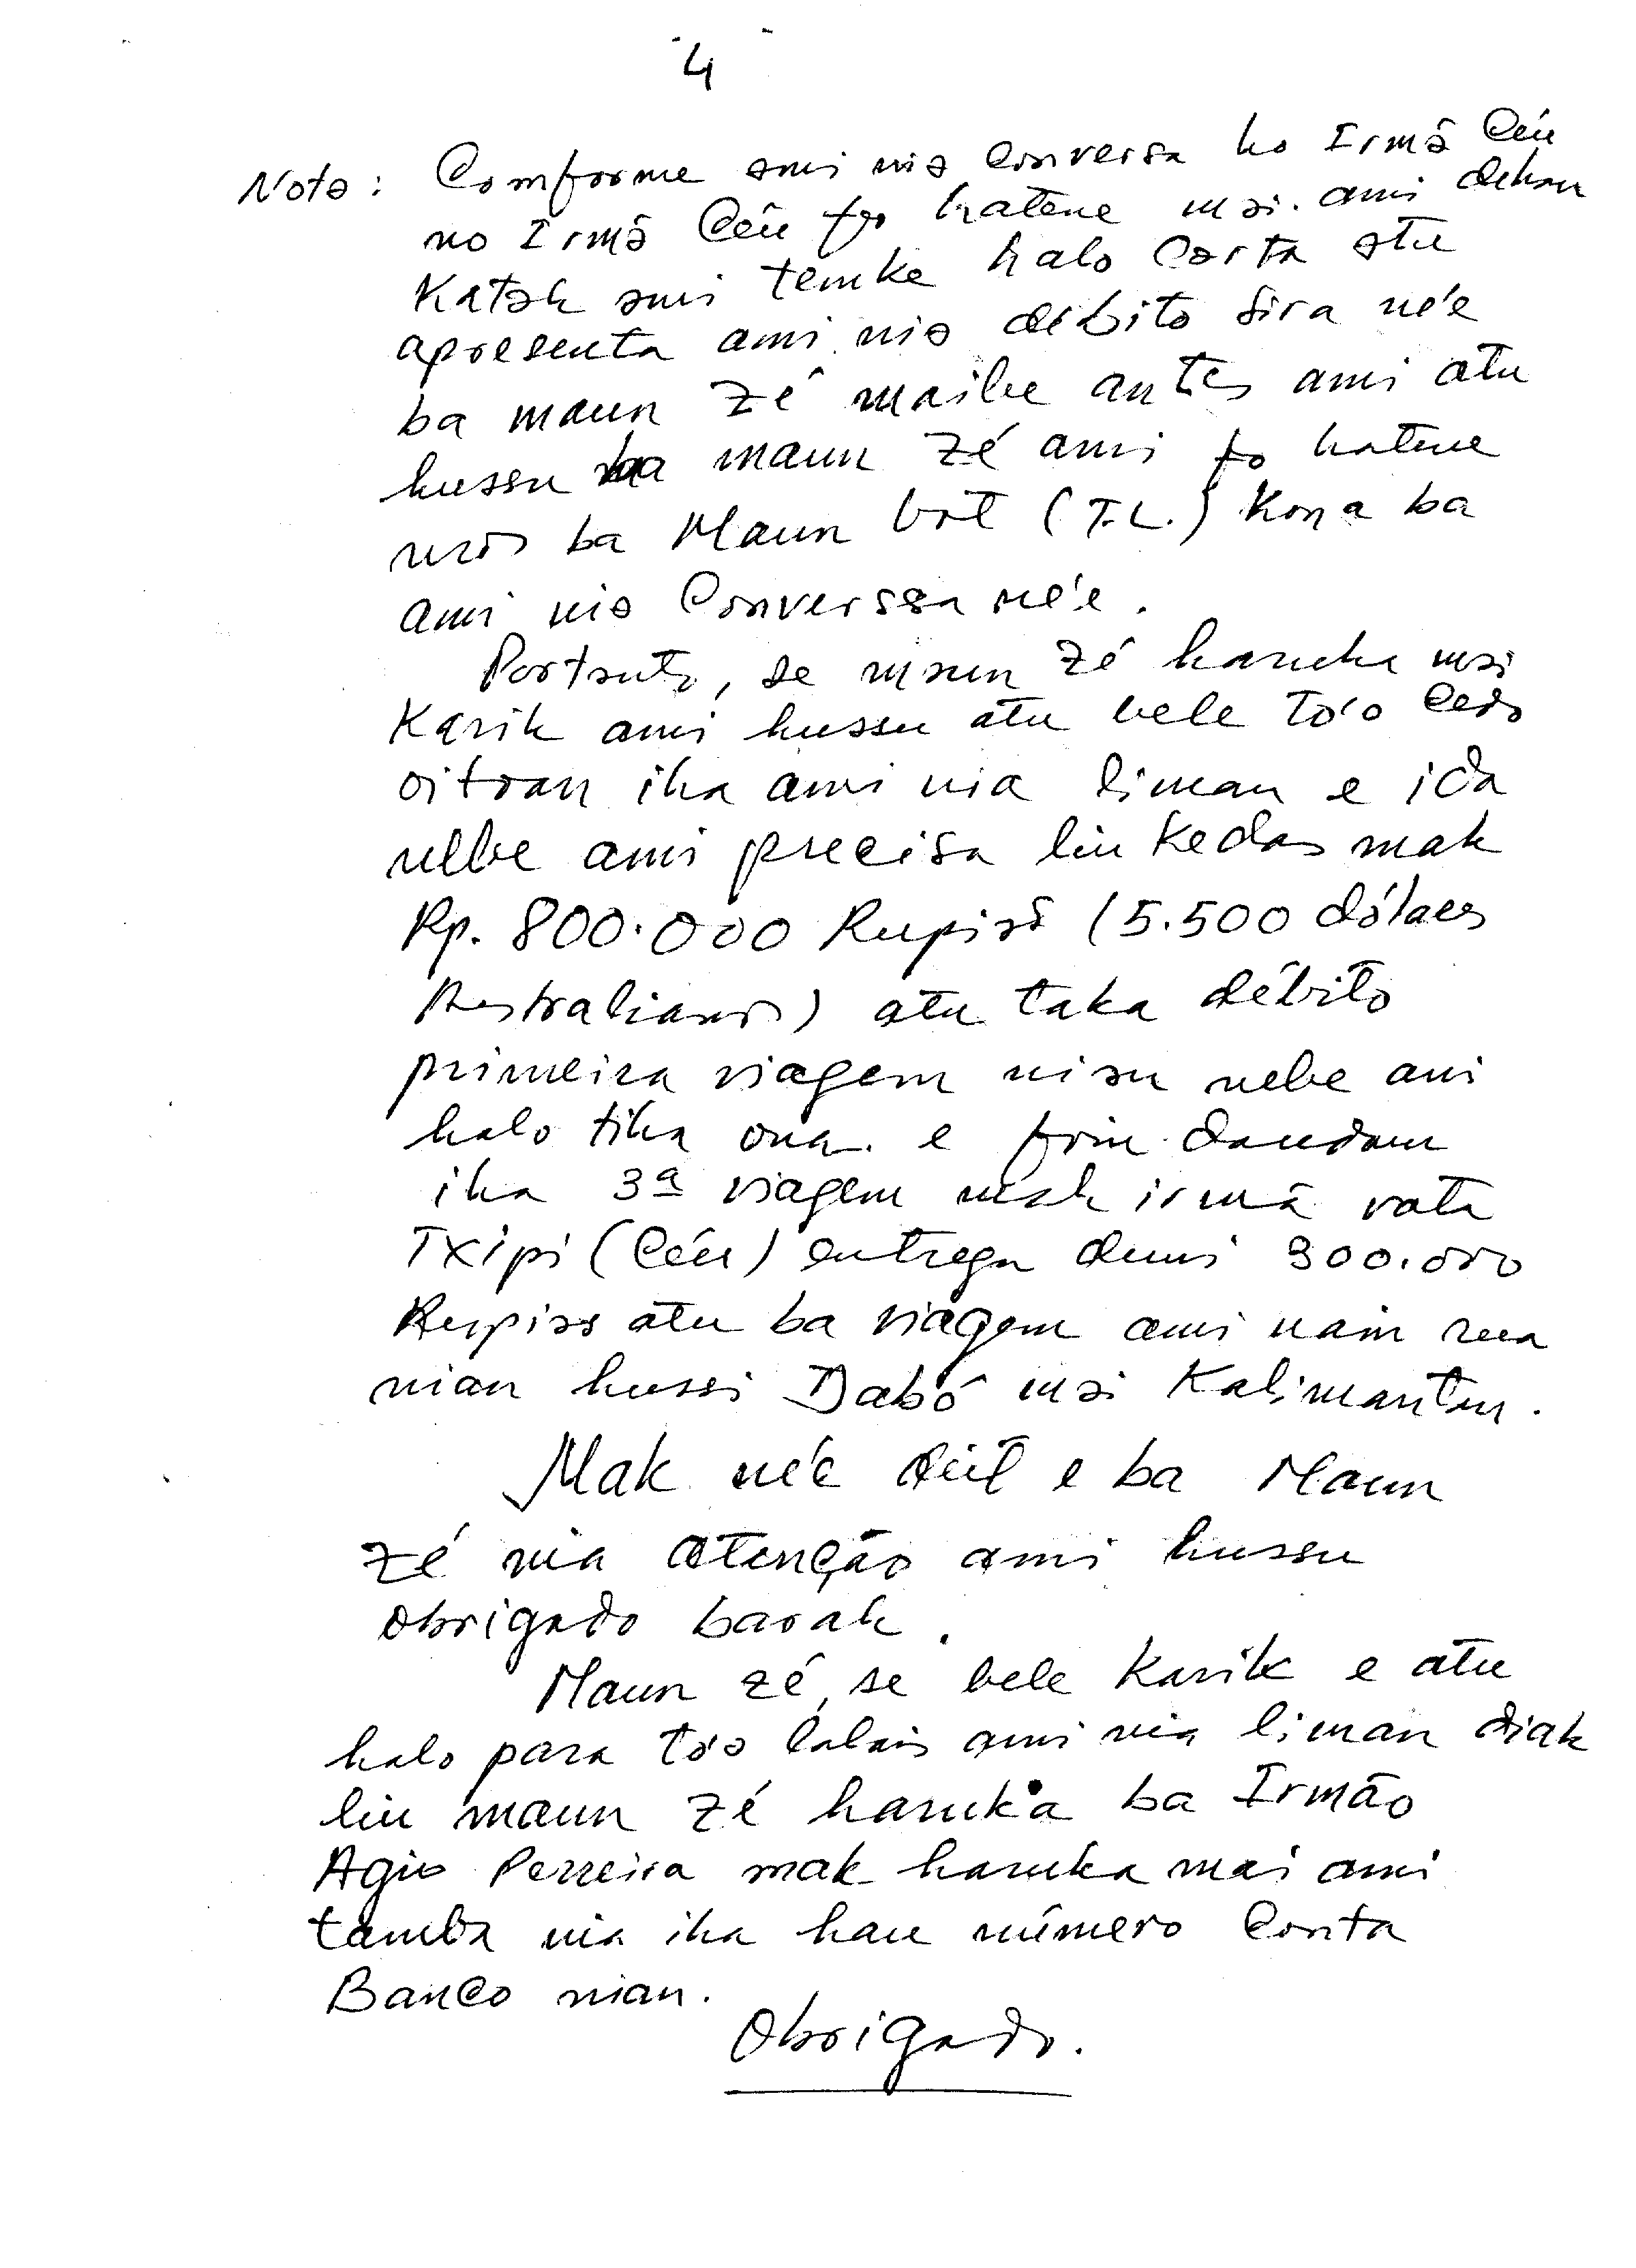 4
Nota: Comforme ami nia Conversa ho Irmã Céu
no Irmã Céu fo hatene mai ami dehan
Katak ami tenke halo Carta atu
apresenta ami nia débito sira né'e
ba maun Zé maibe antes ami atu
hussu ba maun Zé ami fo hatene
nros ba Maun bot (T.L.) Kona ba
ami nia Converssa né'e.
Portanto, se maun Zé haruka mai
Karik ami hussu atu bele to'o Cedo
oitoan iha ami nia liman e ida
nebe ami precisa liu Kedas mak
Rp. 800.000 Rupias (5.500 dólares
Australianos) atu taka débito
primeira viagem nian nebe ami
halo tiha ona. e foin daudaun
iha 3ª viagem mak irmã rata
Txipi (Céu) entrega deni 300.000
Rupias atu ba viagem ami nain rua
nian hussi Dabó mai Kalimantan.
Mak né'e deit e ba Maun
Zé nia atenção ami hussu
obrigado barak.
Maun Zé, se bele Karik e atu
halo para to'o lalais ami nia liman diak
liu maun Zé haruka ba Irmão
Agio Perreira mak haruka mai ami
tamba nia iha hau número Conta
Banco nian.
Obrigado.